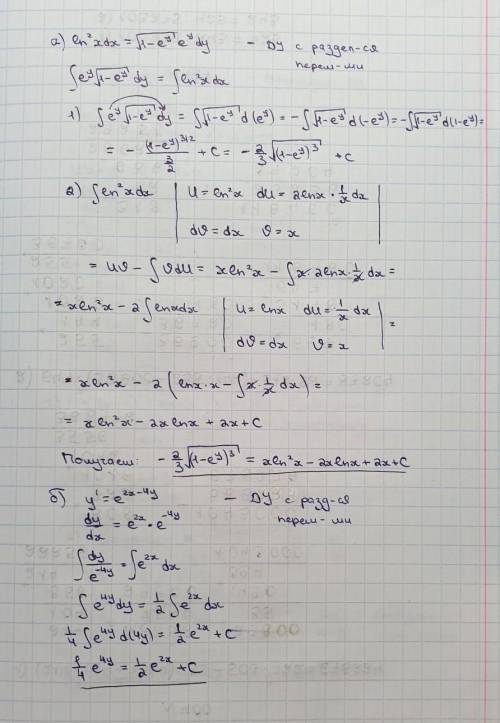 а) ln²x dx = √(1-e^y) e^y dy — ДУ с раздел-ся
перем-ми
∫e^y √(1-e^y) dy = ∫ln²x dx
1) ∫e^y √(1-e^y) dy = ∫√(1-e^y) d(e^y) = -∫√(1-e^y) d(-e^y) = -∫√(1-e^y) d(1-e^y) =
= - (1-e^y)^(3/2) / (3/2) + C = - 2/3 √((1-e^y)³) + C
2) ∫ln²x dx | U = ln²x dU = 2lnx · 1/x dx |
| dv = dx v = x |
= Uv - ∫v dU = x ln²x - ∫x · 2lnx · 1/x dx =
= x ln²x - 2∫lnx dx | U = lnx dU = 1/x dx | =
| dv = dx v = x |
= x ln²x - 2 (lnx · x - ∫x · 1/x dx) =
= x ln²x - 2x lnx + 2x + C
Получаем: - 2/3 √((1-e^y)³) = x ln²x - 2x lnx + 2x + C
б) y' = e^(2x-4y) — ДУ с разд-ся
перем-ми
dy/dx = e^(2x) · e^(-4y)
∫dy/e^(-4y) = ∫e^(2x) dx
∫e^(4y) dy = 1/2 ∫e^(2x) dx
1/4 ∫e^(4y) d(4y) = 1/2 e^(2x) + C
1/4 e^(4y) = 1/2 e^(2x) + C